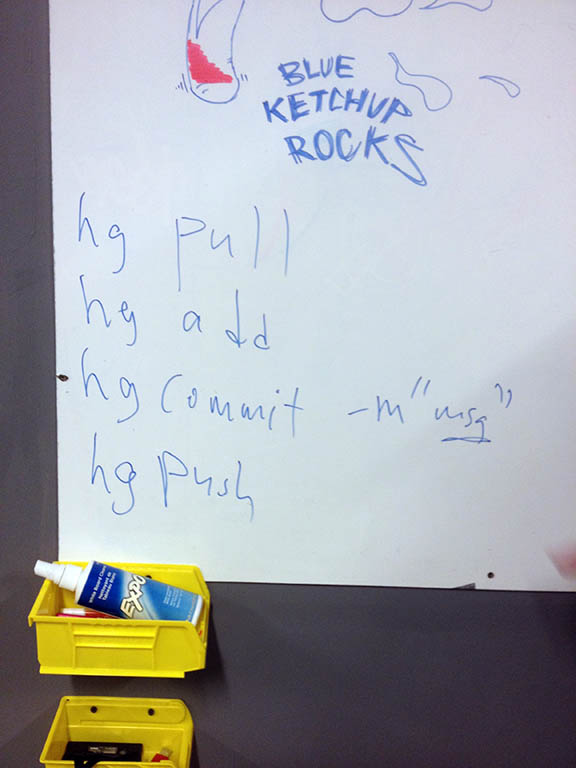 BLUE
KETCHUP
ROCKS
hg pull
hg add
hg commit -m "msg"
hg push
EXPO